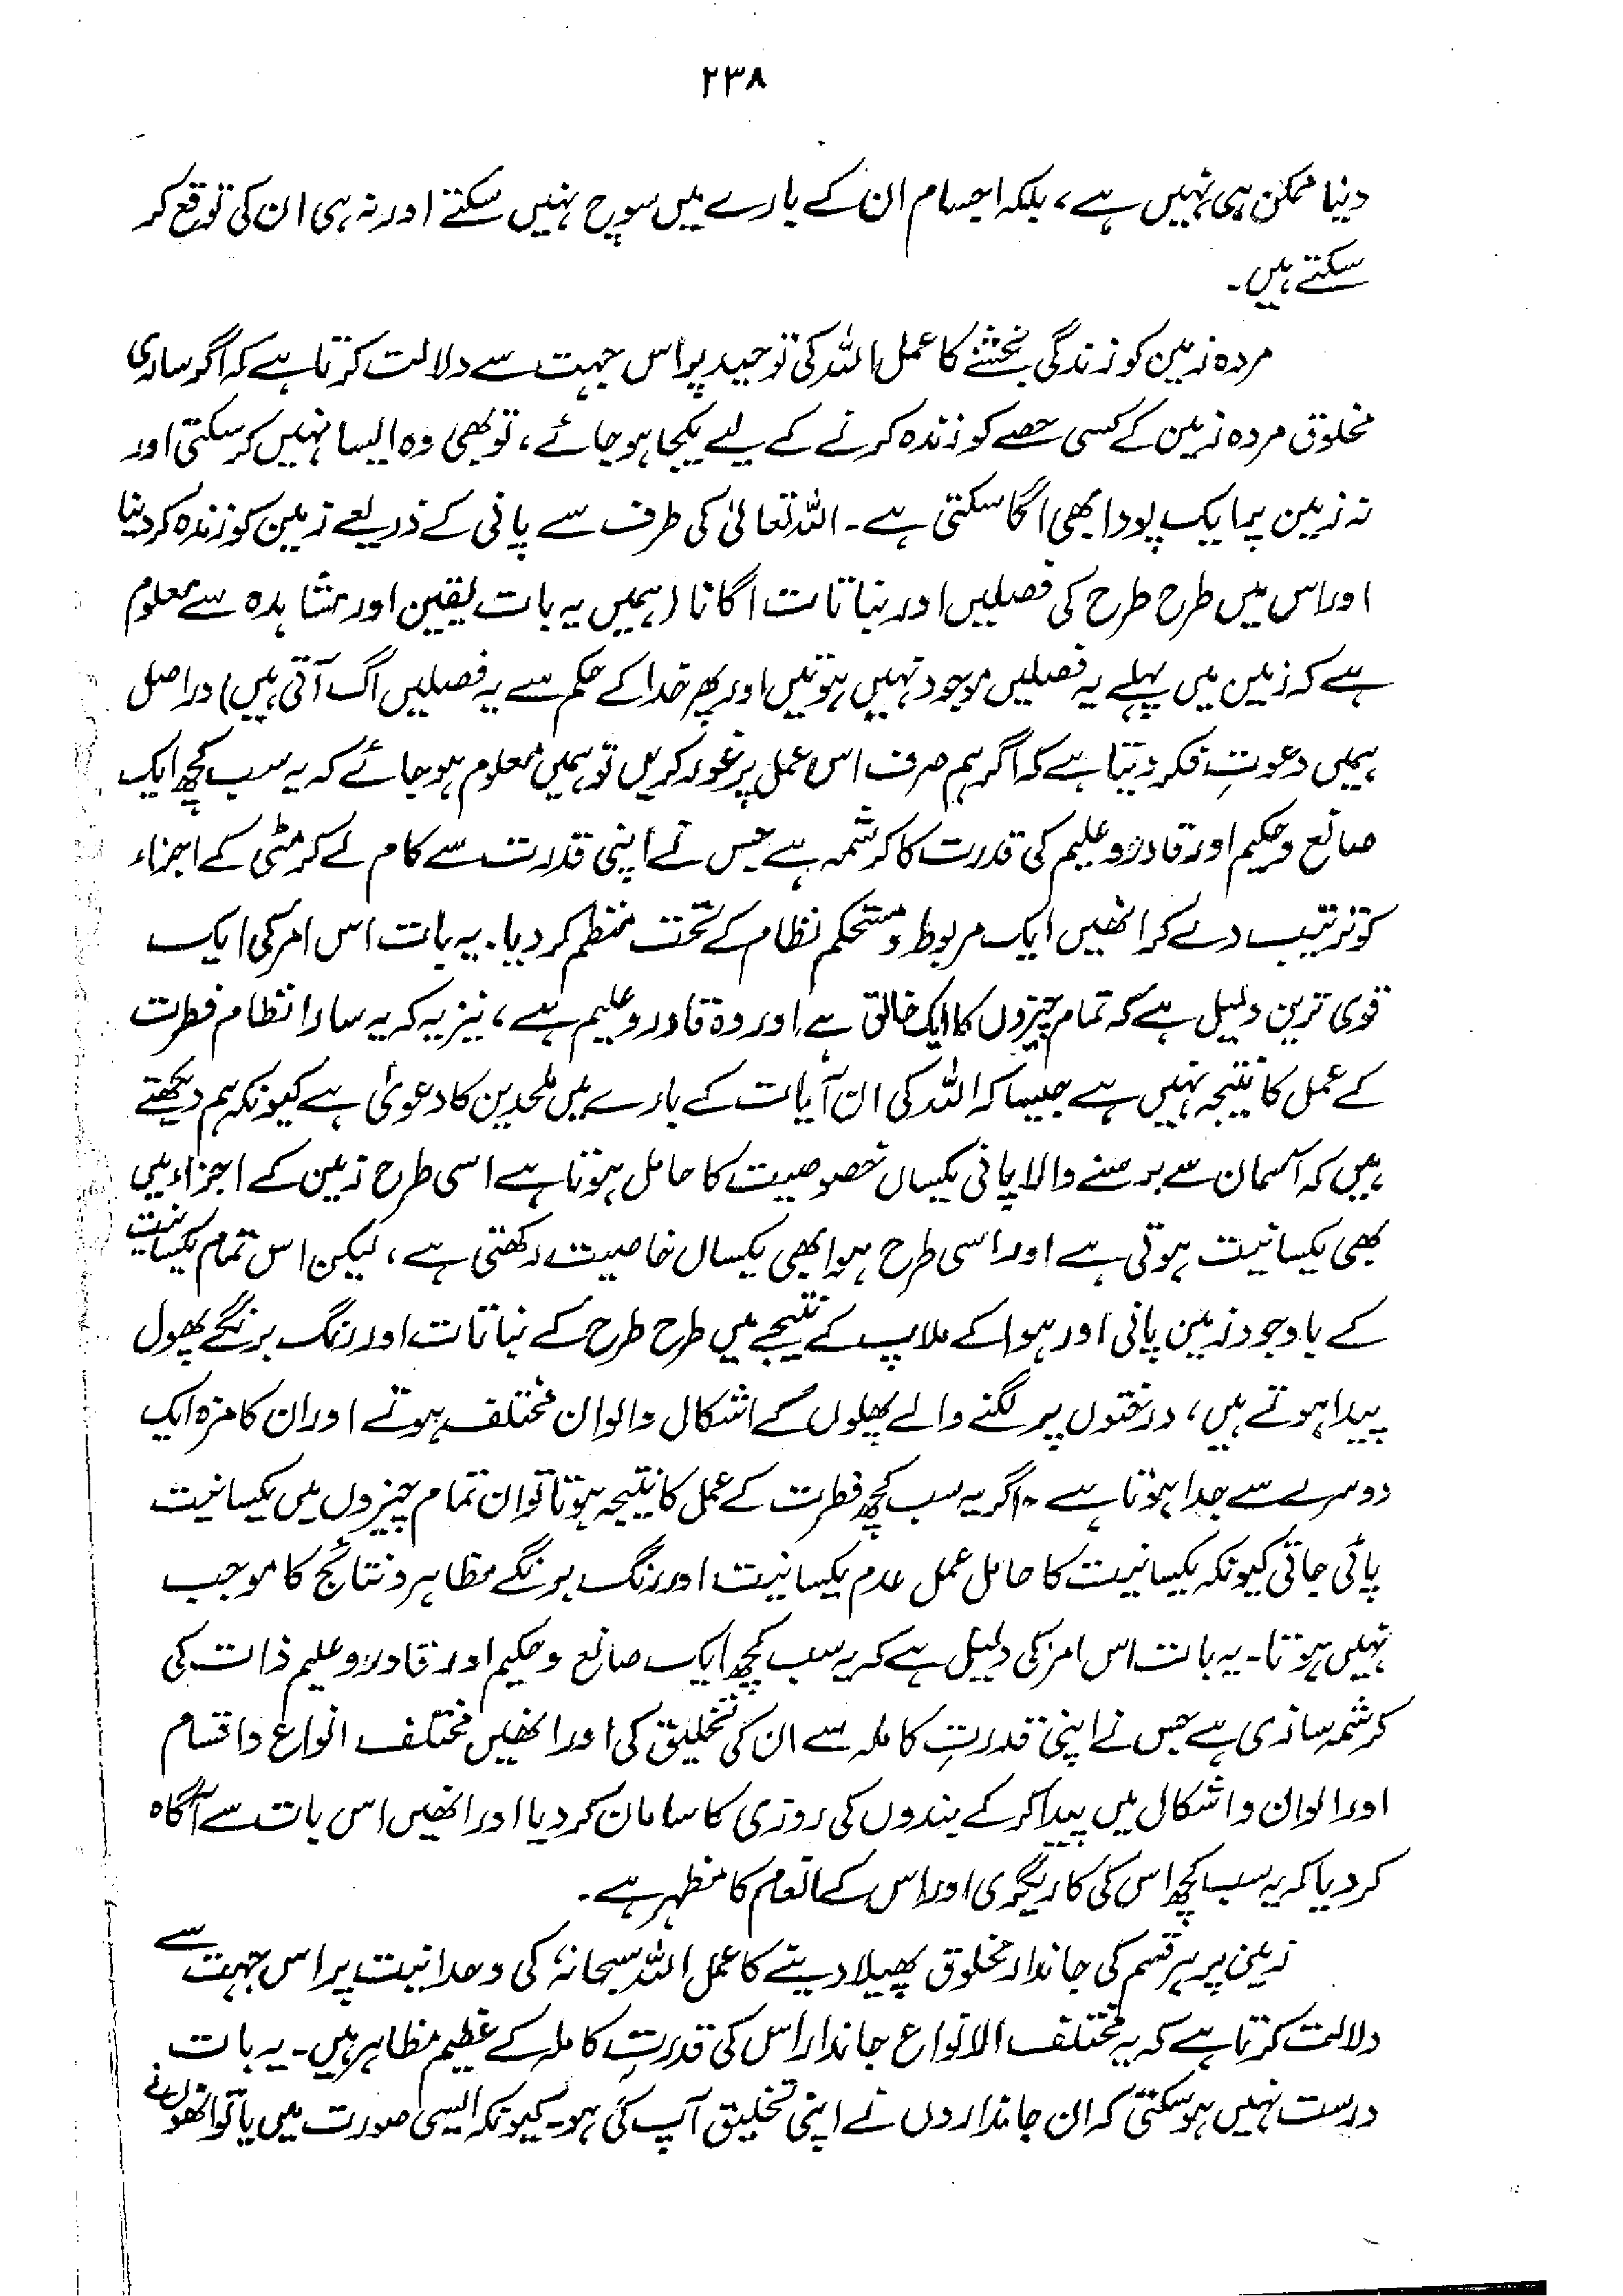 ۲۳۸
دینا ممکن ہی نہیں ہے، بلکہ اجسام ان کے بارے میں سوچ نہیں سکتے اور نہ ہی ان کی توقع کر
سکتے ہیں۔
مردہ زمین کو زندگی بخشنے کا عمل اللہ کی توحید پر اس جہت سے دلالت کرتا ہے کہ اگر ساری
مخلوق مردہ زمین کے کسی حصے کو زندہ کرنے کے لیے یکجا ہو جائے، تو بھی وہ ایسا نہیں کر سکتی اور
نہ زمین پر ایک پودا بھی اگا سکتی ہے۔ اللہ تعالیٰ کی طرف سے پانی کے ذریعے زمین کو زندہ کر دینا
اور اس میں طرح طرح کی فصلیں اور نباتات اگانا (ہمیں یہ بات یقین اور مشاہدہ سے معلوم
ہے کہ زمین میں پہلے یہ فصلیں موجود نہیں ہوتیں اور پھر خدا کے حکم سے یہ فصلیں اگ آتی ہیں) دراصل
ہمیں دعوتِ فکر دیتا ہے کہ اگر ہم صرف اس عمل پر غور کریں تو ہمیں معلوم ہو جائے کہ یہ سب کچھ ایک
صانع و حکیم اور قادر و علیم کی قدرت کا کرشمہ ہے جس نے اپنی قدرت سے کام لے کر مٹی کے اجزاء
کو ترتیب دے کر انھیں ایک مربوط و مستحکم نظام کے تحت منظم کر دیا۔ یہ بات اس امر کی ایک
قوی ترین دلیل ہے کہ تمام چیزوں کا ایک خالق ہے اور وہ قادر و علیم ہے، نیز یہ کہ یہ سارا نظام فطرت
کے عمل کا نتیجہ نہیں ہے جیسا کہ اللہ کی ان آیات کے بارے میں ملحدین کا دعویٰ ہے کیونکہ ہم دیکھتے
ہیں کہ آسمان سے برسنے والا پانی یکساں خصوصیت کا حامل ہوتا ہے اسی طرح زمین کے اجزاء میں
بھی یکسانیت ہوتی ہے اور اسی طرح ہوا بھی یکساں خاصیت رکھتی ہے، لیکن اس تمام یکسانیت
کے باوجود زمین پانی اور ہوا کے ملاپ کے نتیجے میں طرح طرح کے نباتات اور رنگ برنگے پھول
پیدا ہوتے ہیں، درختوں پر لگنے والے پھلوں کے اشکال و الوان مختلف ہوتے اور ان کا مزہ ایک
دوسرے سے جدا ہوتا ہے۔ اگر یہ سب کچھ فطرت کے عمل کا نتیجہ ہوتا تو ان تمام چیزوں میں یکسانیت
پائی جاتی کیونکہ یکسانیت کا حامل عمل عدم یکسانیت اور رنگ برنگے مظاہر و نتائج کا موجب
نہیں ہوتا۔ یہ بات اس امر کی دلیل ہے کہ یہ سب کچھ ایک صانع و حکیم اور قادر و علیم ذات کی
کرشمہ سازی ہے جس نے اپنی قدرتِ کاملہ سے ان کی تخلیق کی اور انھیں مختلف انواع و اقسام
اور الوان و اشکال میں پیدا کر کے بندوں کی روزی کا سامان کر دیا اور انھیں اس بات سے آگاہ
کر دیا کہ یہ سب کچھ اس کی کاریگری اور اس کے انعام کا مظہر ہے۔
زمین پر ہر قسم کی جاندار مخلوق پھیلا دینے کا عمل اللہ سبحانہٗ کی وحدانیت پر اس جہت سے
دلالت کرتا ہے کہ یہ مختلف الانواع جاندار اس کی قدرتِ کاملہ کے عظیم مظاہر ہیں۔ یہ بات
درست نہیں ہو سکتی کہ ان جانداروں نے اپنی تخلیق آپ کی ہو۔ کیونکہ ایسی صورت میں یا تو انھوں نے